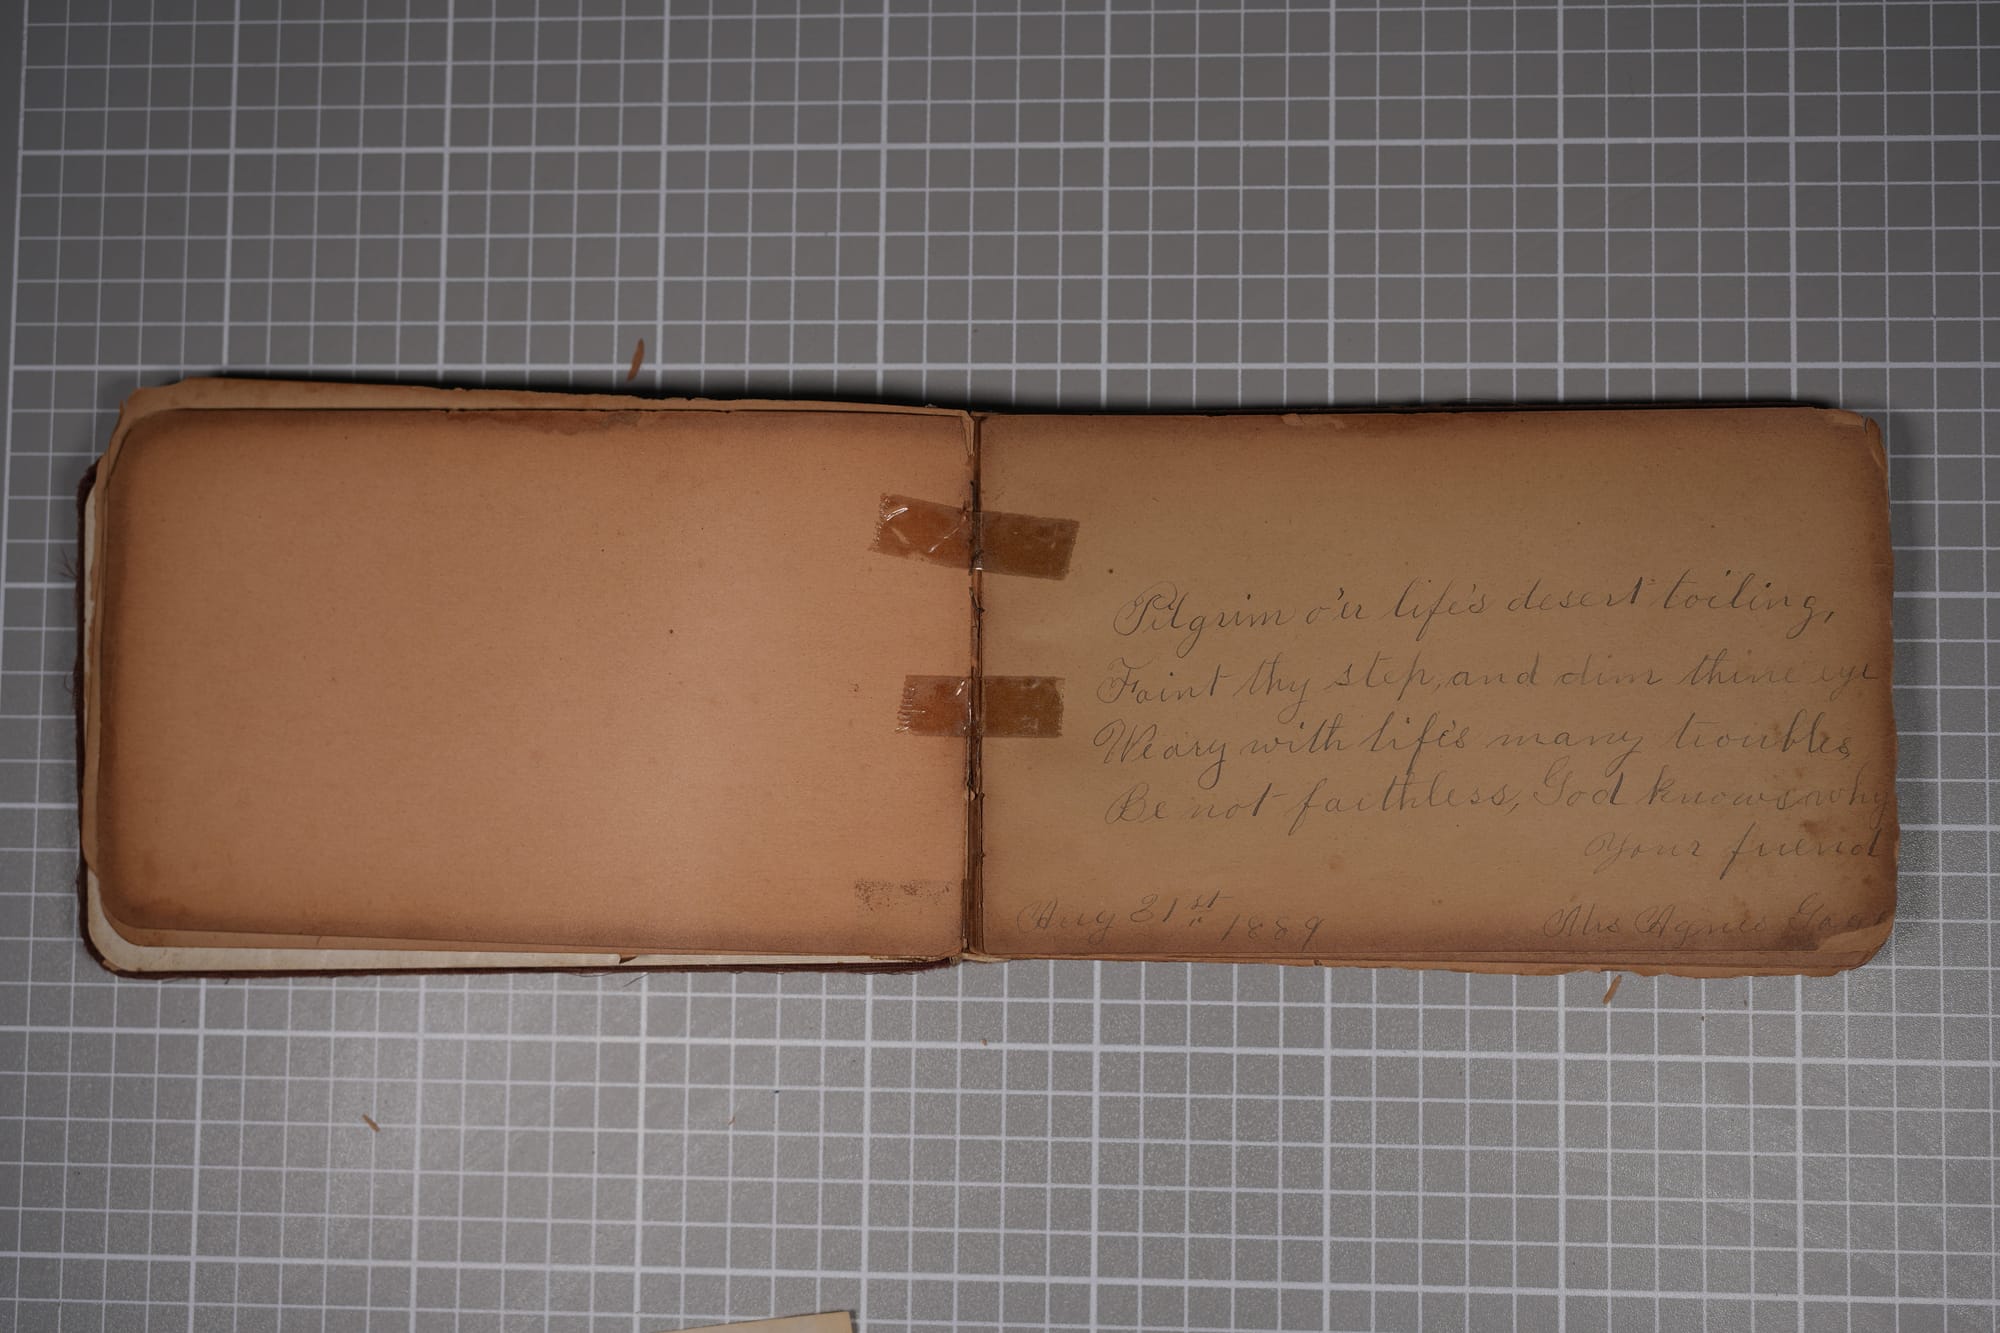 Pilgrim o'er life's desert toiling,
Faint thy step, and dim thine eye
Weary with life's many troubles
Be not faithless, God knows why
Your friend
Aug 21st 1889
Mrs Agnes